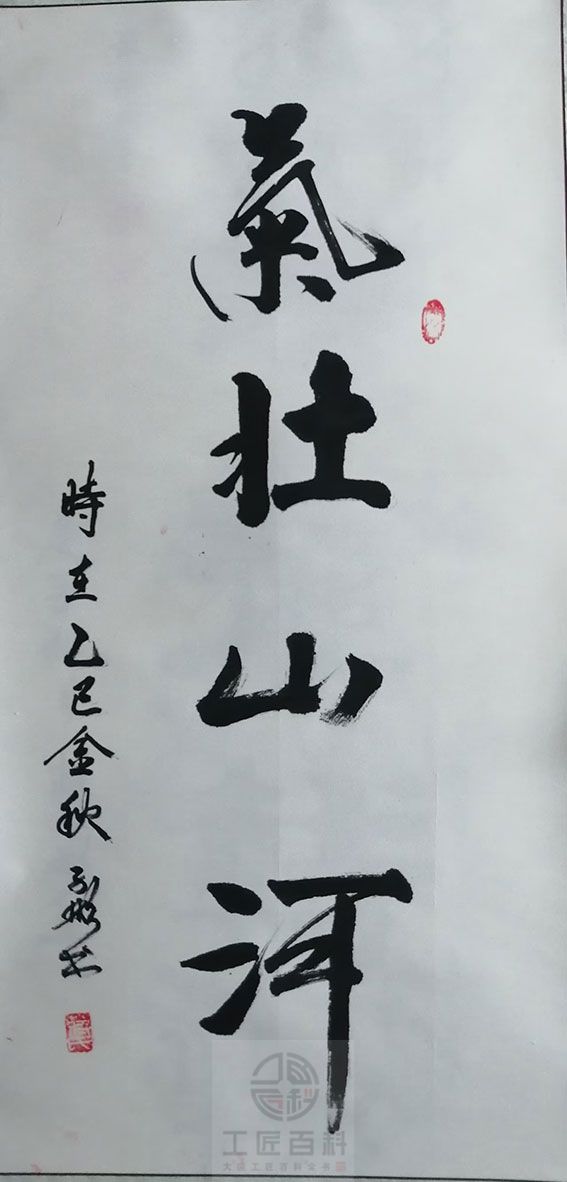 氣壯山河
時在乙巳金秋
書
工匠百科
大国工匠百科全书